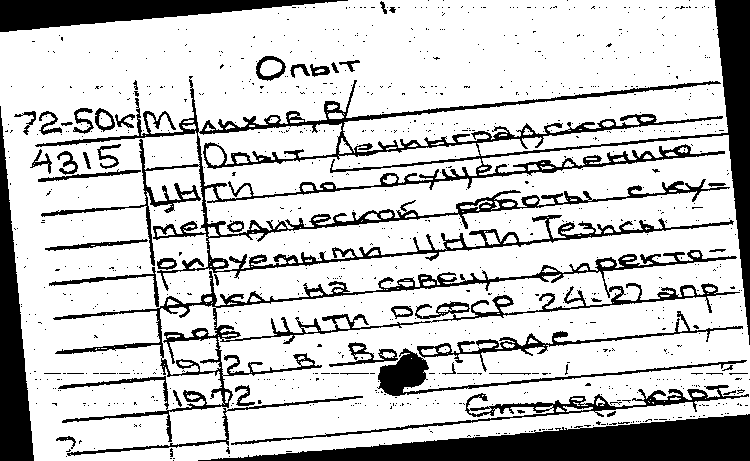 1.
Опыт
72-50к Мелихов, В
4315 Опыт Ленинградского
ЦНТИ по осуществлению
методической работы с ку-
рируемыми ЦНТИ. Тезисы
докл. на совещ. директо-
ров ЦНТИ РСФСР 24-27 апр.
1972г. в Волгограде. Л.,
1972.
См. след карт